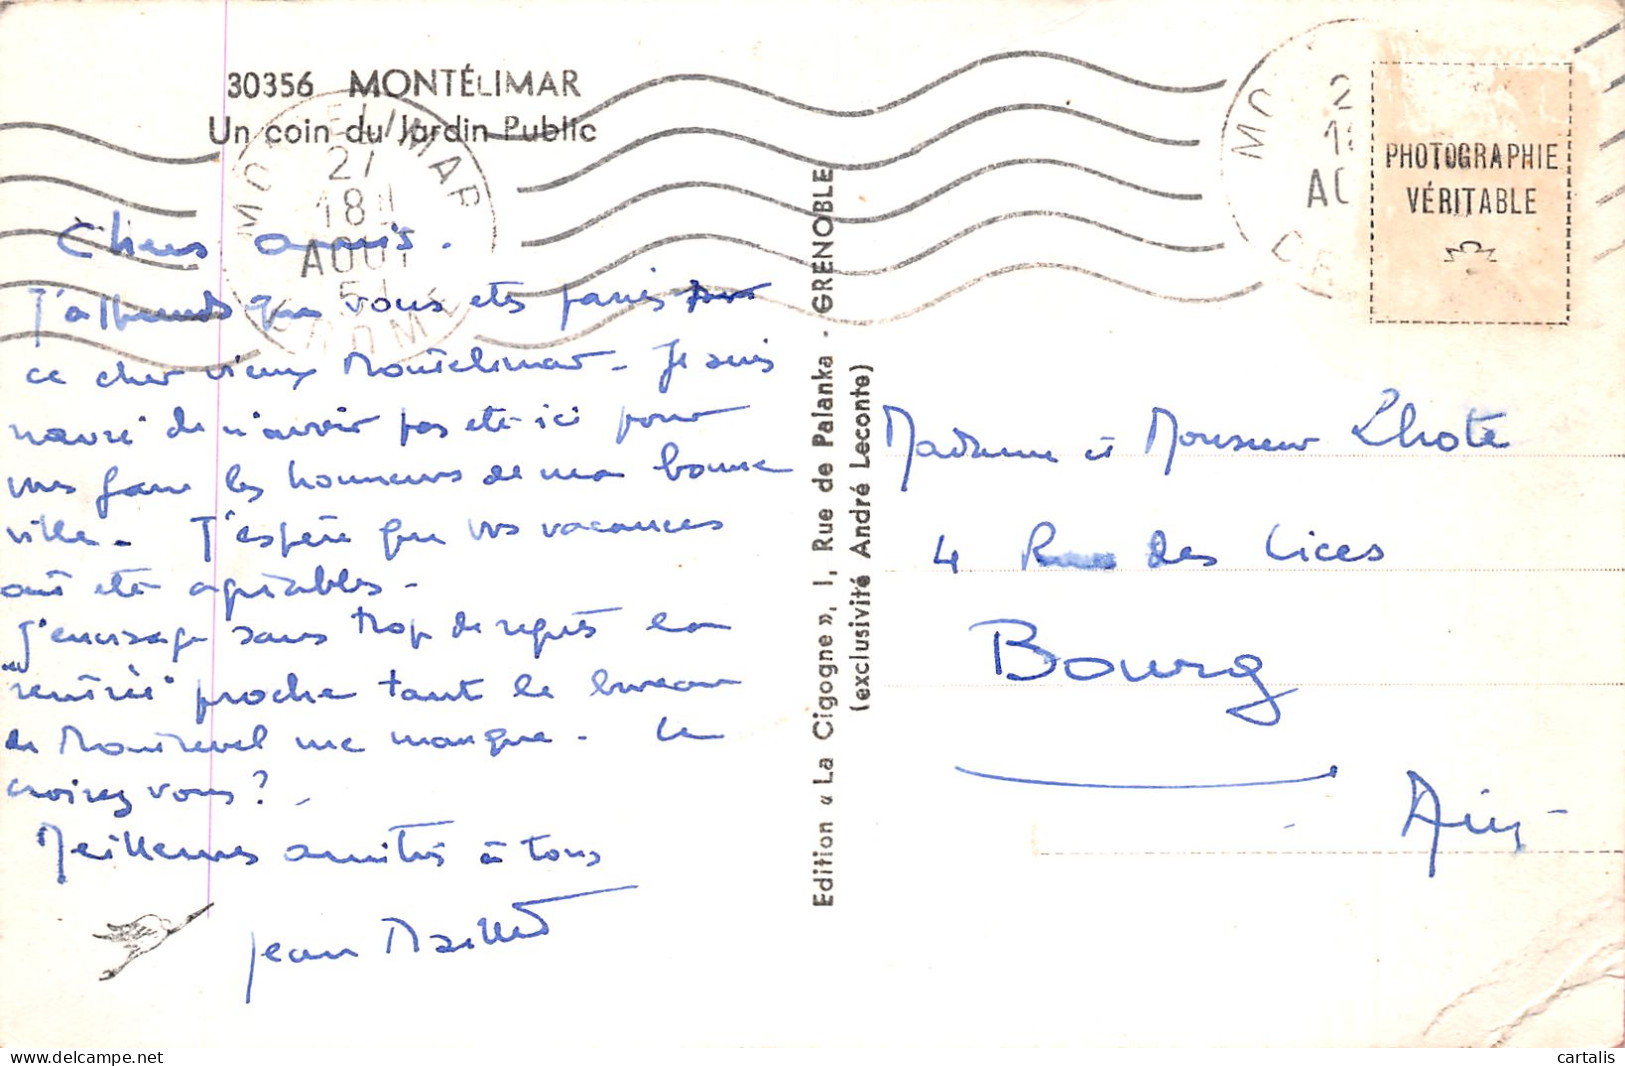 30356 MONTÉLIMAR
Un coin du Jardin Public
MONTELIMAR
27
18H
AOUT
DROME
Chers amis.
J'apprends que vous etes passés par
ce cher vieux Montelimar - Je suis
navré de n'avoir pas eté ici pour
vous faire les honneurs de ma bonne
ville - J'espère que vos vacances
ont eté agréables -
J'envisage sans trop de regrets la
"rentrée" proche tant le bureau
de Montrevel me manque - Le
croirez vous ?
Meilleures amitiés à tous
Jean Maillet
Edition « La Cigogne », 1, Rue de Palanka - GRENOBLE
(exclusivité André Leconte)
MO
2
18
AO
PHOTOGRAPHIE
VÉRITABLE
Madame et Monsieur Lhote
4 Rue des Lices
Bourg
Ain
cartalis
delcampe.net